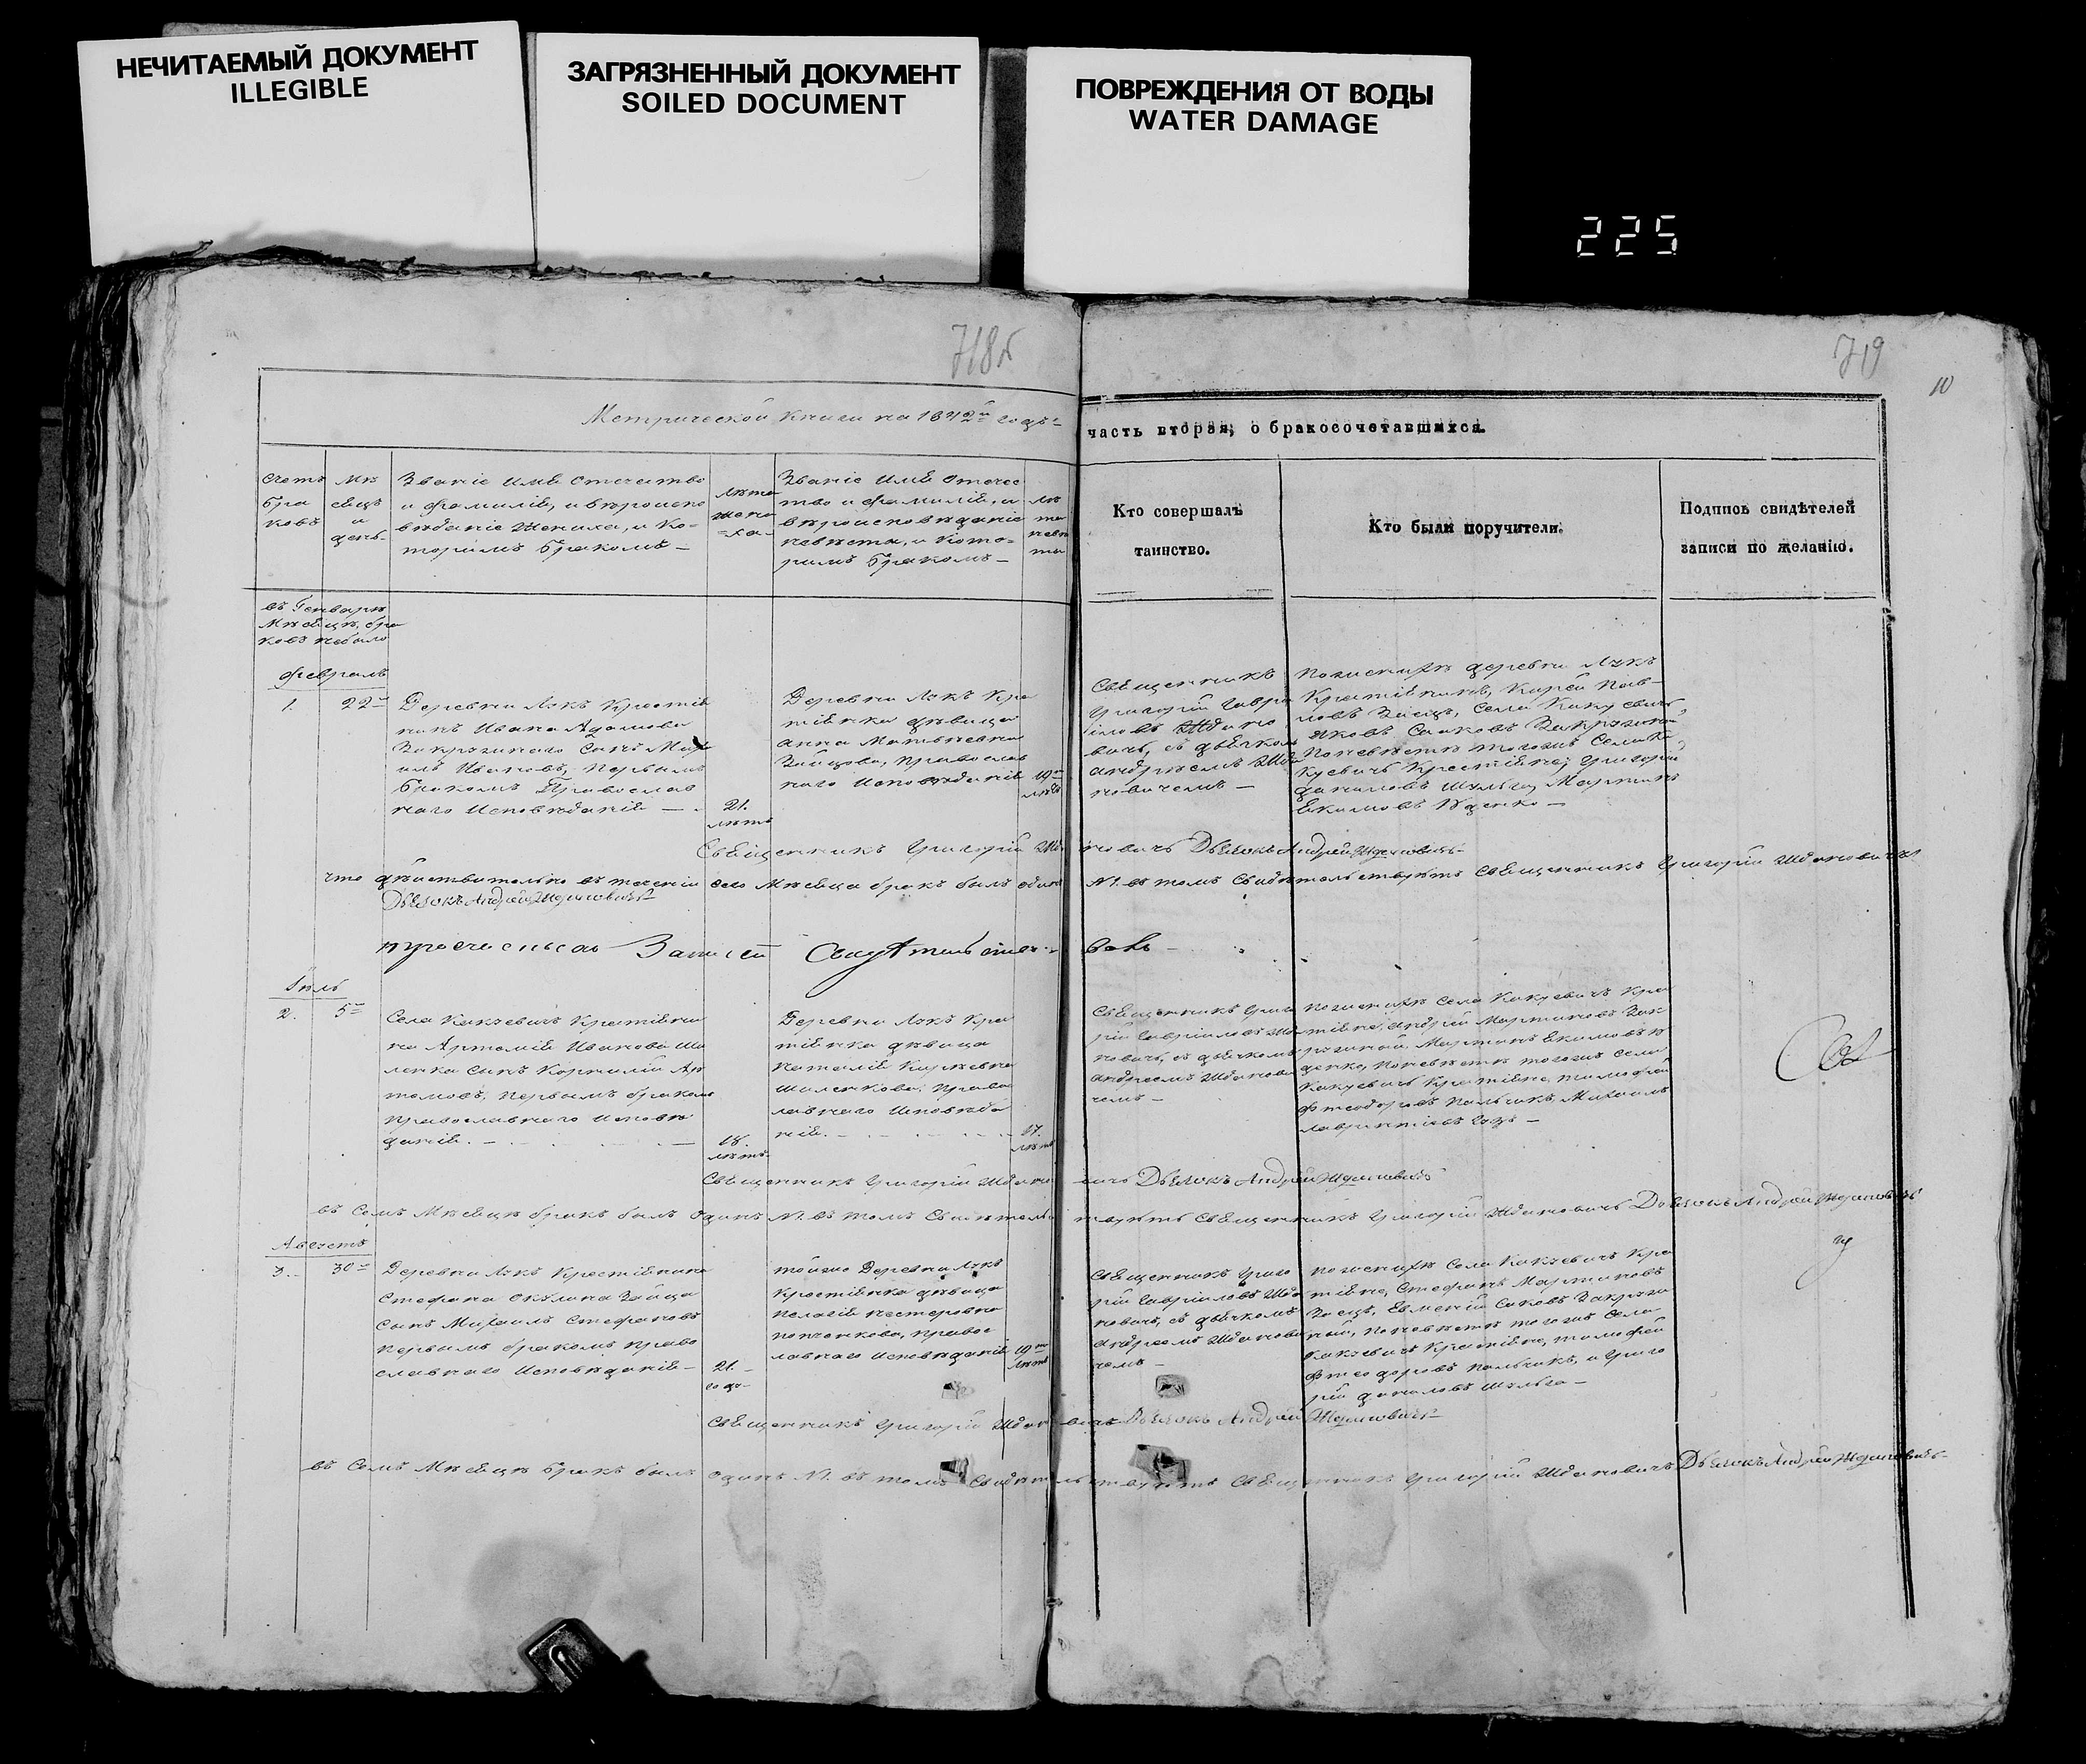 НЕЧИТАЕМЫЙ ДОКУМЕНТ
ILLEGIBLE
ЗАГРЯЗНЕННЫЙ ДОКУМЕНТ
SOILED DOCUMENT
ПОВРЕЖДЕНИЯ ОТ ВОДЫ
WATER DAMAGE
225
718
719
10
Метрической книги на 1842й годъ
часть вторая, о бракосочетавшихся.
счетъ
бра
ковъ
мѣ
сяцъ
и
день
Званіе имя отечество
и фамилія, и вѣроиспо
вѣданіе жениха, и ко-
торымъ бракомъ
лѣта
жени
ха
Званіе имя отечес
тво и фамилія, и
вѣроисповѣданіе
невѣсты, и кото-
рымъ бракомъ
лѣ
та
невѣ
ты
Кто совершалъ
таинство.
Кто были поручители.
Подпись свидѣтелей
записи по желанію.
въ Генварѣ
Мѣсяцѣ, бра
ковъ небыло
Февраль
1. 22
Деревни Лукъ Крестья
нинъ Ивана Адамова
Закружнаго Сынъ
Ивановъ, первымъ
бракомъ Православ
наго Исповѣданія
21.
лѣтъ
Деревни Лукъ Кре
тьянка дѣвица
Анна Матвѣевна
Зайцова, Православ
наго Исповѣданія
19
лѣтъ
Священникъ
Григорій Гаври
иловъ Ждано
вичъ, съ дьячком
Андреемъ Жда
новичемъ
По женихѣ деревни Лукъ
Крестьянинъ, Карпъ Пав-
ловъ Заецъ, Села Какуевичъ
Яковъ Саковъ Закружной,
По невѣстѣ тогожъ Села Ка
куевичъ Крестьяне, Григорій
Даниловъ Шульга, Мартинъ
Екимовъ
Священникъ Григорій Ждановичъ Дьячокъ Андрей Ждановичъ
что дѣйствительно въ теченіи сего Мѣсяца бракъ былъ одинъ N1. въ томъ Свидѣтельствуетъ Священникъ Григорій Ждановичъ
Дьячокъ Андрей Ждановичъ
Записи
Іюль
2. 5
Села Какуевичъ Крестьяни
на Артемія Иванова Ша
ленка сынъ Корнилій Ар
темовъ, первымъ бракомъ
православнаго Исповѣ
данія.
18.
лѣтъ
Деревни Лукъ Кре
тьянка дѣвица
Наталія Карпевна
Шаленкова, Правос
лавнаго Исповѣда
нія.
17.
лѣтъ
Священникъ Григо
рій Гавріиловъ Жда
новичъ, съ дьячкомъ
Андреемъ Жданови
чемъ
По женихѣ Села Какуевичъ Кре
тьяне, Андрей Мартиновъ Зак
ружной, Мартинъ Екимовъ
по невѣстѣ тогожъ села
Какуевичъ Крестьяне, Тимофей
Фтеодоровъ Пальчикъ, Михаилъ
Лаврентіевъ
Священникъ Григорій Ждановичъ Дьячокъ Андрей Ждановичъ
въ Семъ Мѣсяцѣ бракъ былъ одинъ N1. въ томъ Свидѣтельствуетъ Священникъ Григорій Ждановичъ Дьячокъ Андрей Ждановичъ
Августъ
3. 30
Деревни Лукъ Крестьянина
Стефана Зайца
Сынъ Михаилъ Стефановъ
первымъ бракомъ право
славнаго Исповѣданія
21.
годъ
тойже Деревни Лукъ
Крестьянка дѣвица
Пелагія Нестеровна
правос
лавнаго Исповѣданія
19
лѣтъ
Священникъ Григо
рій Гавріиловъ Жда
новичъ, съ дьячкомъ
Андреемъ Жданови
чемъ
По женихѣ Села Какуевичъ Кре
тьяне, Стефанъ Мартиновъ
Заецъ, Евменій Саковъ Закруж
ной, по невѣстѣ тогожъ Села
Какуевичъ Крестьяне, Тимофей
Фтеодоровъ Пальчикъ, и Григо
рій Даниловъ Шульга
Священникъ Григорій Ждановичъ Дьячокъ Андрей Ждановичъ
въ Семъ Мѣсяцѣ бракъ былъ одинъ N1. въ томъ Свидѣтельствуетъ Священникъ Григорій Ждановичъ Дьячокъ Андрей Ждановичъ